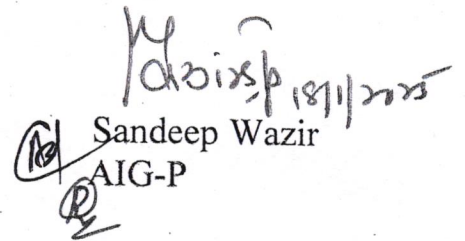 18/1/2025
Sandeep Wazir
AIG-P